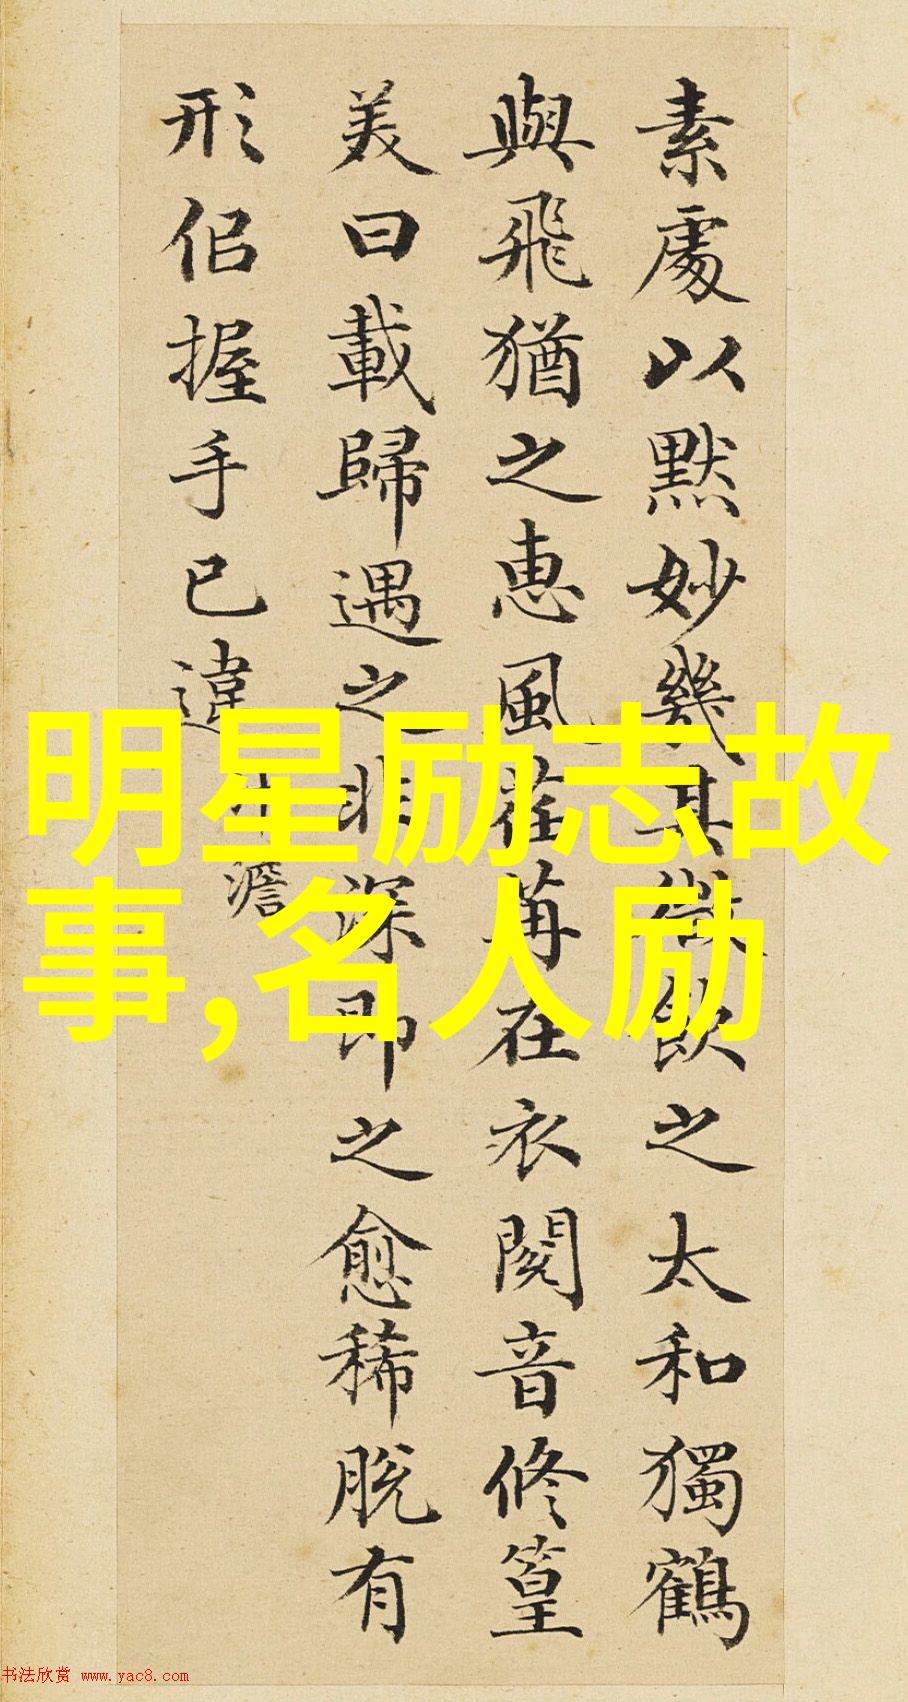 素處以默妙幾其微飲之太和獨鶴
與飛猶之惠風荏苒在衣閱音修篁
美曰載歸遇之非深即之愈稀脫有
形佀握手已違
澹
明星励志故
事,名人励
书法欣赏 www.yac8.com